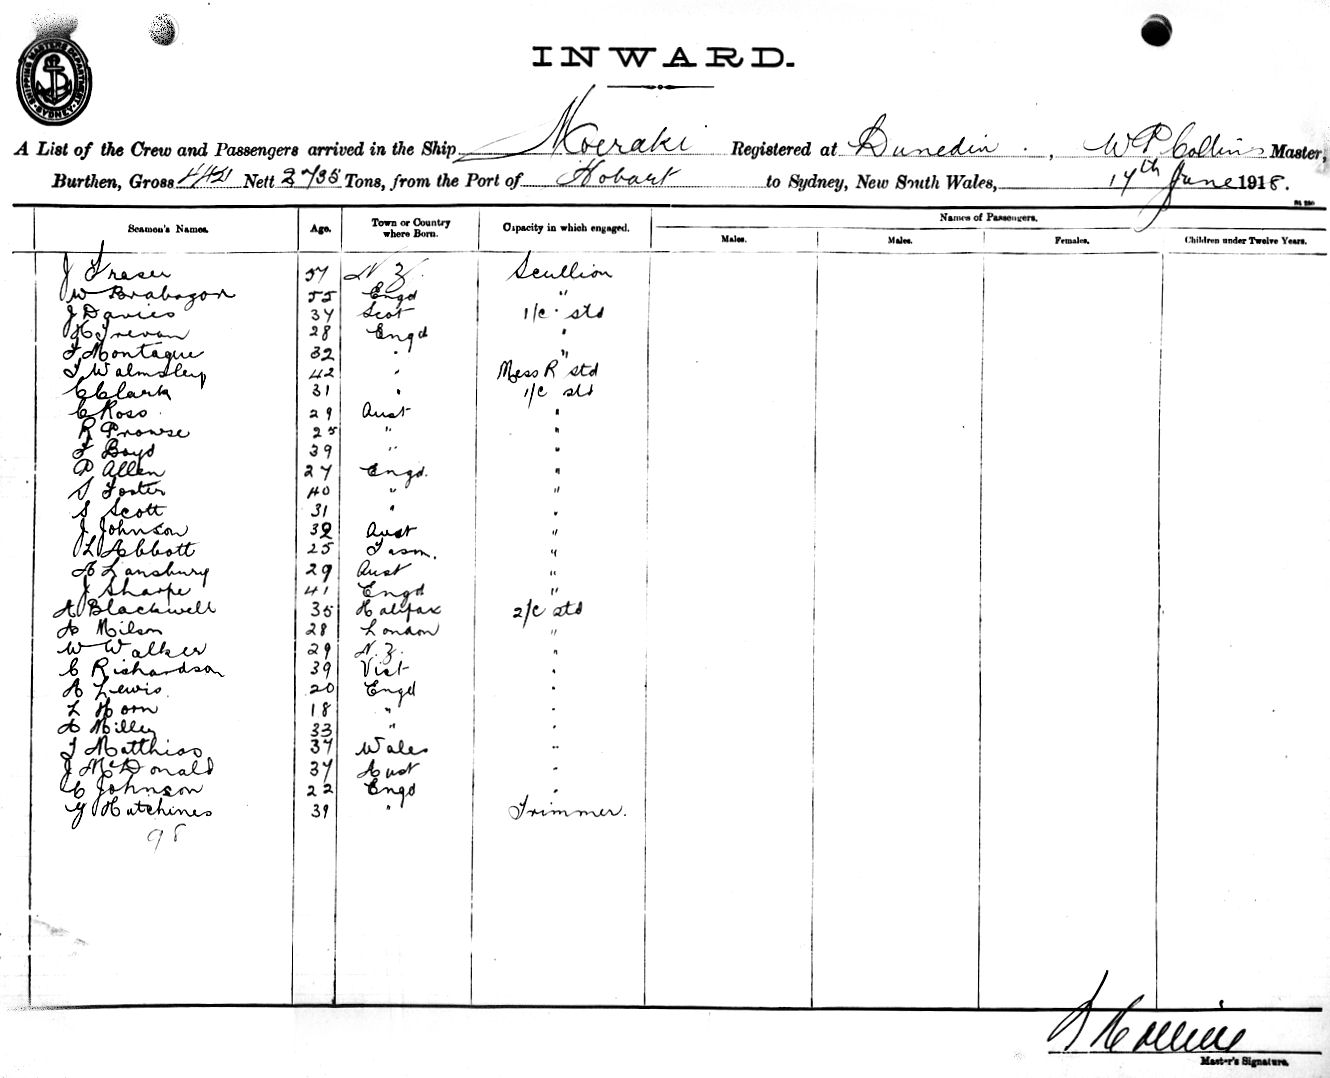 SHIPPING MASTER'S DEPARTMENT SYDNEY
INWARD.
A List of the Crew and Passengers arrived in the Ship Moeraki Registered at Dunedin., W P Collins Master,
Burthen, Gross Nett 2735 Tons, from the Port of Hobart to Sydney, New South Wales, 17th June 1918.
Seamen's Names. Age. Town or Country where Born. Capacity in which engaged. Names of Passengers.
Males. Males. Females. Children under Twelve Years.
J Fraser 57 N.Z. Scullion
W Brabazon 55 Engd "
J Davies 34 Scot 1/c std
H Trevan 28 Engd "
F Montague 32 " "
T Walmsley 42 " Mess R std
C Clark 31 " 1/c std
C Ross 29 Aust "
R Prowse 25 " "
F Boyd 39 " "
P Allen 27 Engd. "
S Foster 40 " "
S Scott 31 " "
J Johnson 32 Aust "
L Abbott 25 Tasm. "
A Lansbury 29 Aust "
J Sharpe 41 Engd "
A Blackwell 35 Halifax 2/c std
A Milson 28 London "
W Walker 29 N.Z. "
C Richardson 39 Vict "
A Lewis 20 Engd "
L Horn 18 " "
A Milley 33 " "
T Matthias 37 Wales "
J McDonald 37 Aust "
C Johnson 22 Engd "
G Hutchines 39 " Trimmer.
98
Collins
Master's Signature.